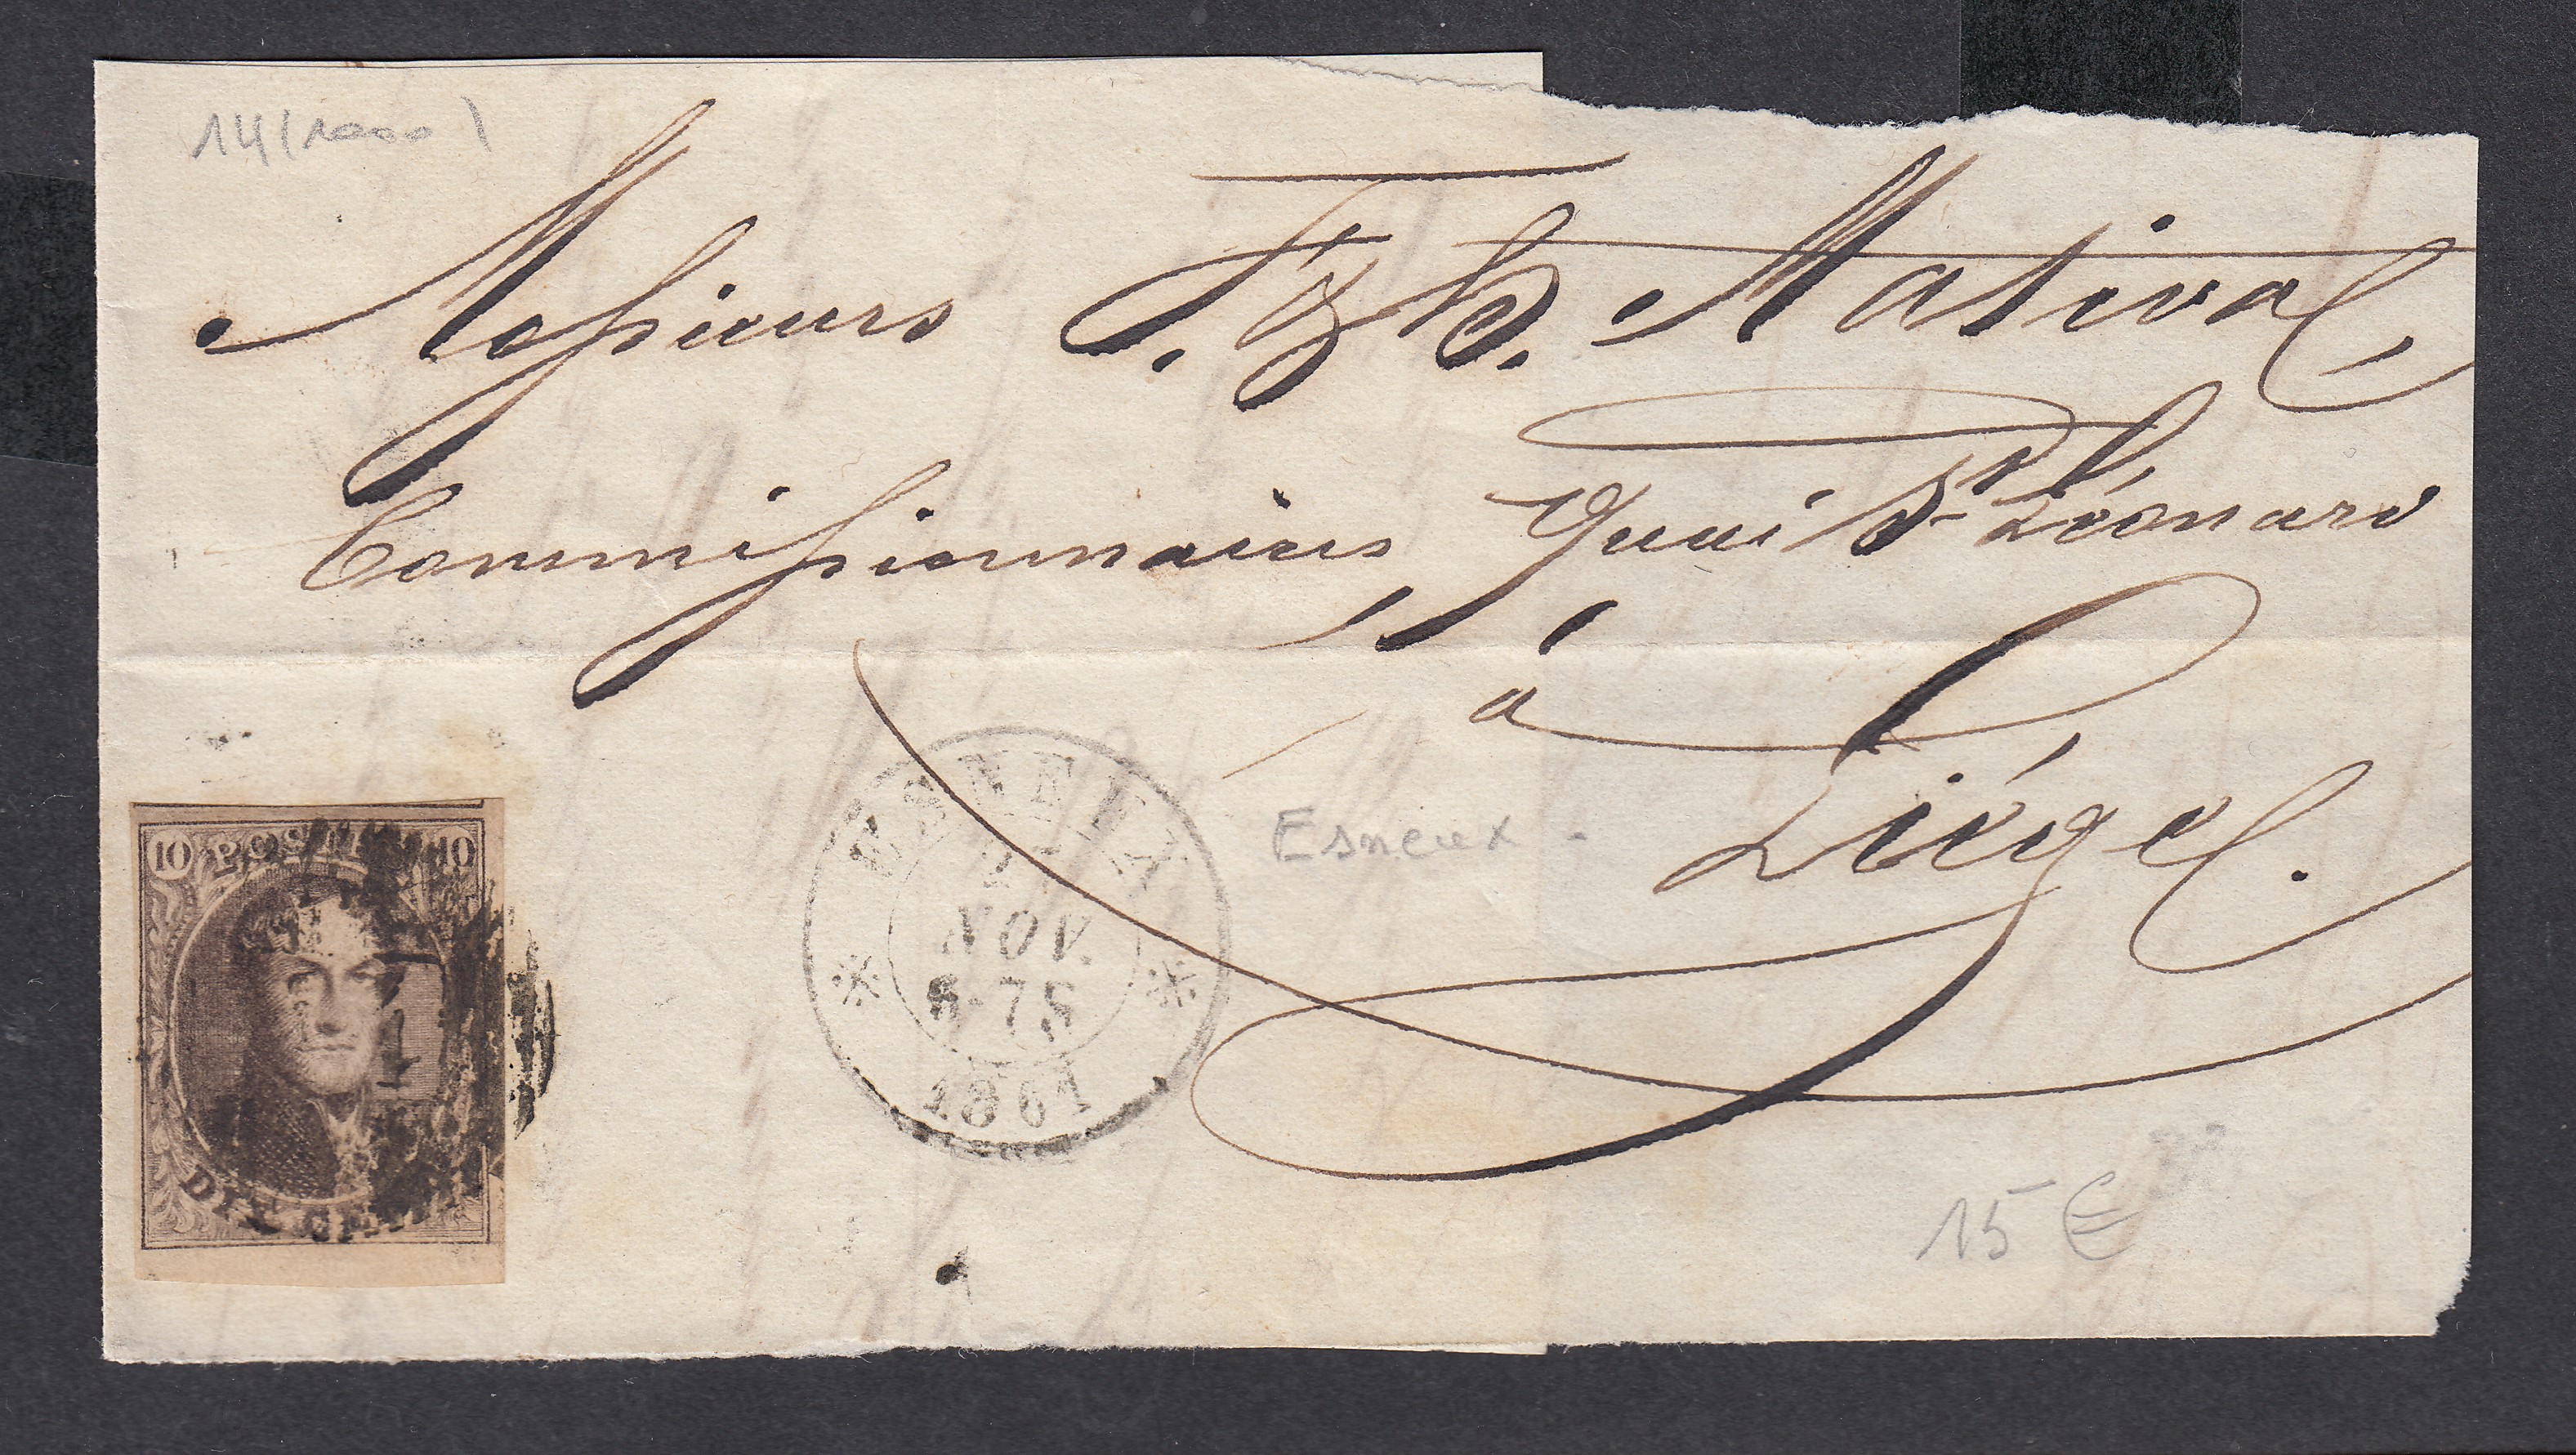 Messieurs F. & H. Mativa
Commissionnaires, Quai St Léonard
à
Liége.
10 POSTES 10
DIX CENTIMES
ESNEUX
NOV.
6-7S
1861
Esneux -
15 €